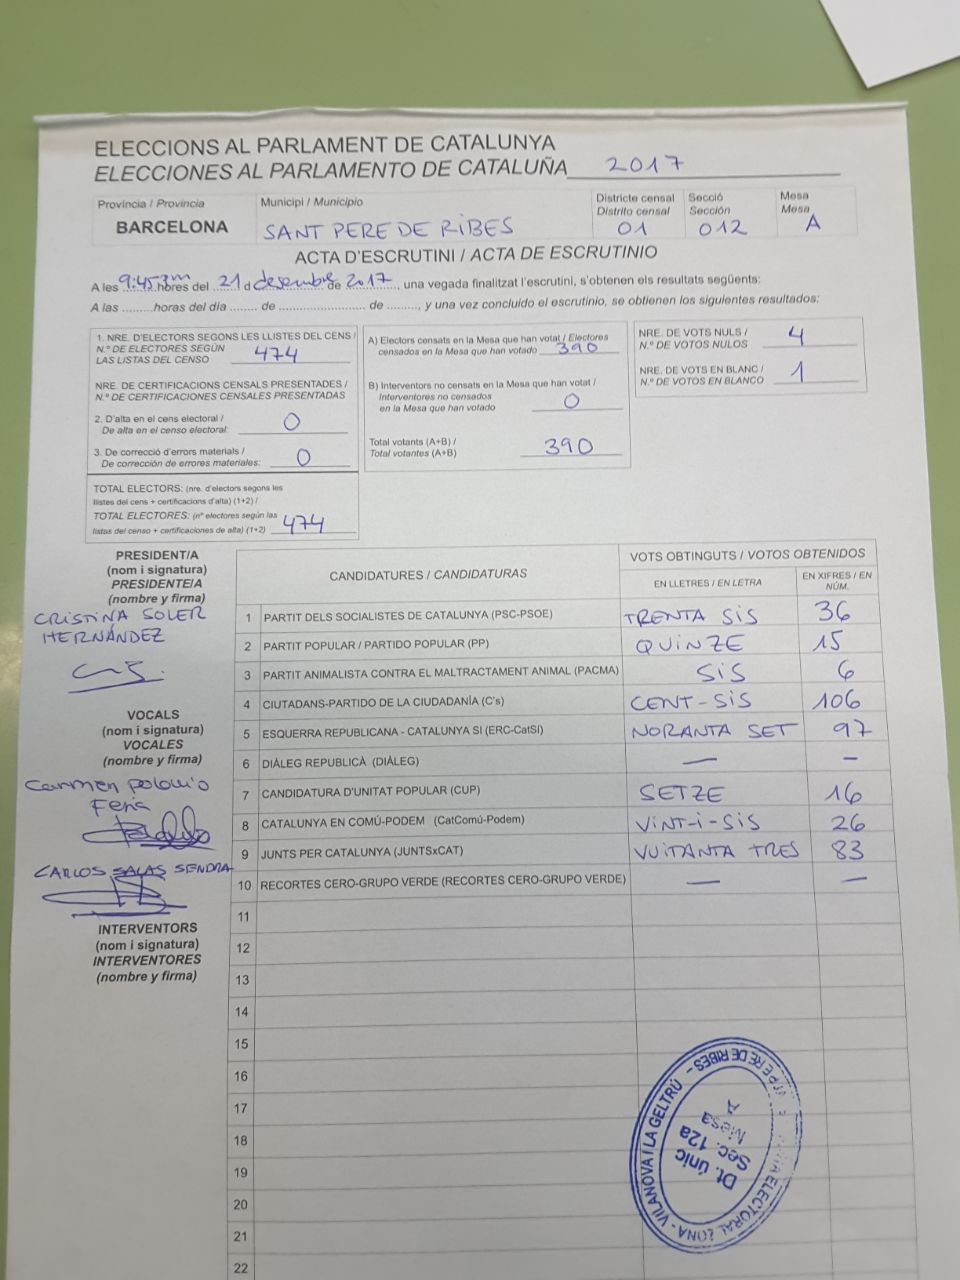 ELECCIONS AL PARLAMENT DE CATALUNYA
ELECCIONES AL PARLAMENTO DE CATALUÑA 2017
Provincia / Provincia
BARCELONA
Municipi / Municipio
SANT PERE DE RIBES
Districte censal
Distrito censal
01
Secció
Sección
012
Mesa
Mesa
A
ACTA D'ESCRUTINI / ACTA DE ESCRUTINIO
A les 9:45pm hores del 21 d desembre de 2017, una vegada finalitzat l'escrutini, s'obtenen els resultats següents:
A las .........horas del día ....... de ...................... de ........, y una vez concluido el escrutinio, se obtienen los siguientes resultados:
1. NRE. D'ELECTORS SEGONS LES LLISTES DEL CENS /
N.º DE ELECTORES SEGÚN
LAS LISTAS DEL CENSO 474
NRE. DE CERTIFICACIONS CENSALS PRESENTADES /
N.º DE CERTIFICACIONES CENSALES PRESENTADAS
2. D'alta en el cens electoral /
De alta en el censo electoral: 0
3. De correcció d'errors materials /
De corrección de errores materiales: 0
TOTAL ELECTORS: (nre. d'electors segons les
llistes del cens + certificacions d'alta) (1+2) /
TOTAL ELECTORES: (nº electores según las
listas del censo + certificaciones de alta) (1+2) 474
A) Electors censats en la Mesa que han votat / Electores
censados en la Mesa que han votado 390
B) Interventors no censats en la Mesa que han votat /
Interventores no censados
en la Mesa que han votado 0
Total votants (A+B) /
Total votantes (A+B) 390
NRE. DE VOTS NULS /
N.º DE VOTOS NULOS 4
NRE. DE VOTS EN BLANC /
N.º DE VOTOS EN BLANCO 1
PRESIDENT/A
(nom i signatura)
PRESIDENTE/A
(nombre y firma)
CRISTINA SOLER
HERNÁNDEZ
VOCALS
(nom i signatura)
VOCALES
(nombre y firma)
Carmen
Feria
CARLOS SALAS SENDRA
INTERVENTORS
(nom i signatura)
INTERVENTORES
(nombre y firma)
CANDIDATURES / CANDIDATURAS
VOTS OBTINGUTS / VOTOS OBTENIDOS
EN LLETRES / EN LETRA
EN XIFRES / EN
NÚM.
1 PARTIT DELS SOCIALISTES DE CATALUNYA (PSC-PSOE) TRENTA SIS 36
2 PARTIT POPULAR / PARTIDO POPULAR (PP) QUINZE 15
3 PARTIT ANIMALISTA CONTRA EL MALTRACTAMENT ANIMAL (PACMA) SIS 6
4 CIUTADANS-PARTIDO DE LA CIUDADANÍA (C's) CENT-SIS 106
5 ESQUERRA REPUBLICANA - CATALUNYA SI (ERC-CatSI) NORANTA SET 97
6 DIÀLEG REPUBLICÀ (DIÀLEG) — —
7 CANDIDATURA D'UNITAT POPULAR (CUP) SETZE 16
8 CATALUNYA EN COMÚ-PODEM (CatComú-Podem) VINT-I-SIS 26
9 JUNTS PER CATALUNYA (JUNTSxCAT) VUITANTA TRES 83
10 RECORTES CERO-GRUPO VERDE (RECORTES CERO-GRUPO VERDE) — —
11
12
13
14
15
16
17
18
19
20
21
22
ELECTORAL ZONA - VILANOVA I LA GELTRÚ - PERE DE RIBES
Dt. únic
Sec. 12a
Mesa
A